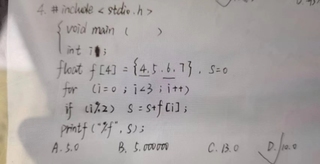 4. #include <stdio.h>
{ void main ( )
int i;
float f[4] = {4.5.6.7}, s=0
for (i=0; i<3; i++)
if (i%2) s=s+f[i];
printf("%f", s);
A. 5.0 B. 5.000000 C. 13.0 D. 10.0